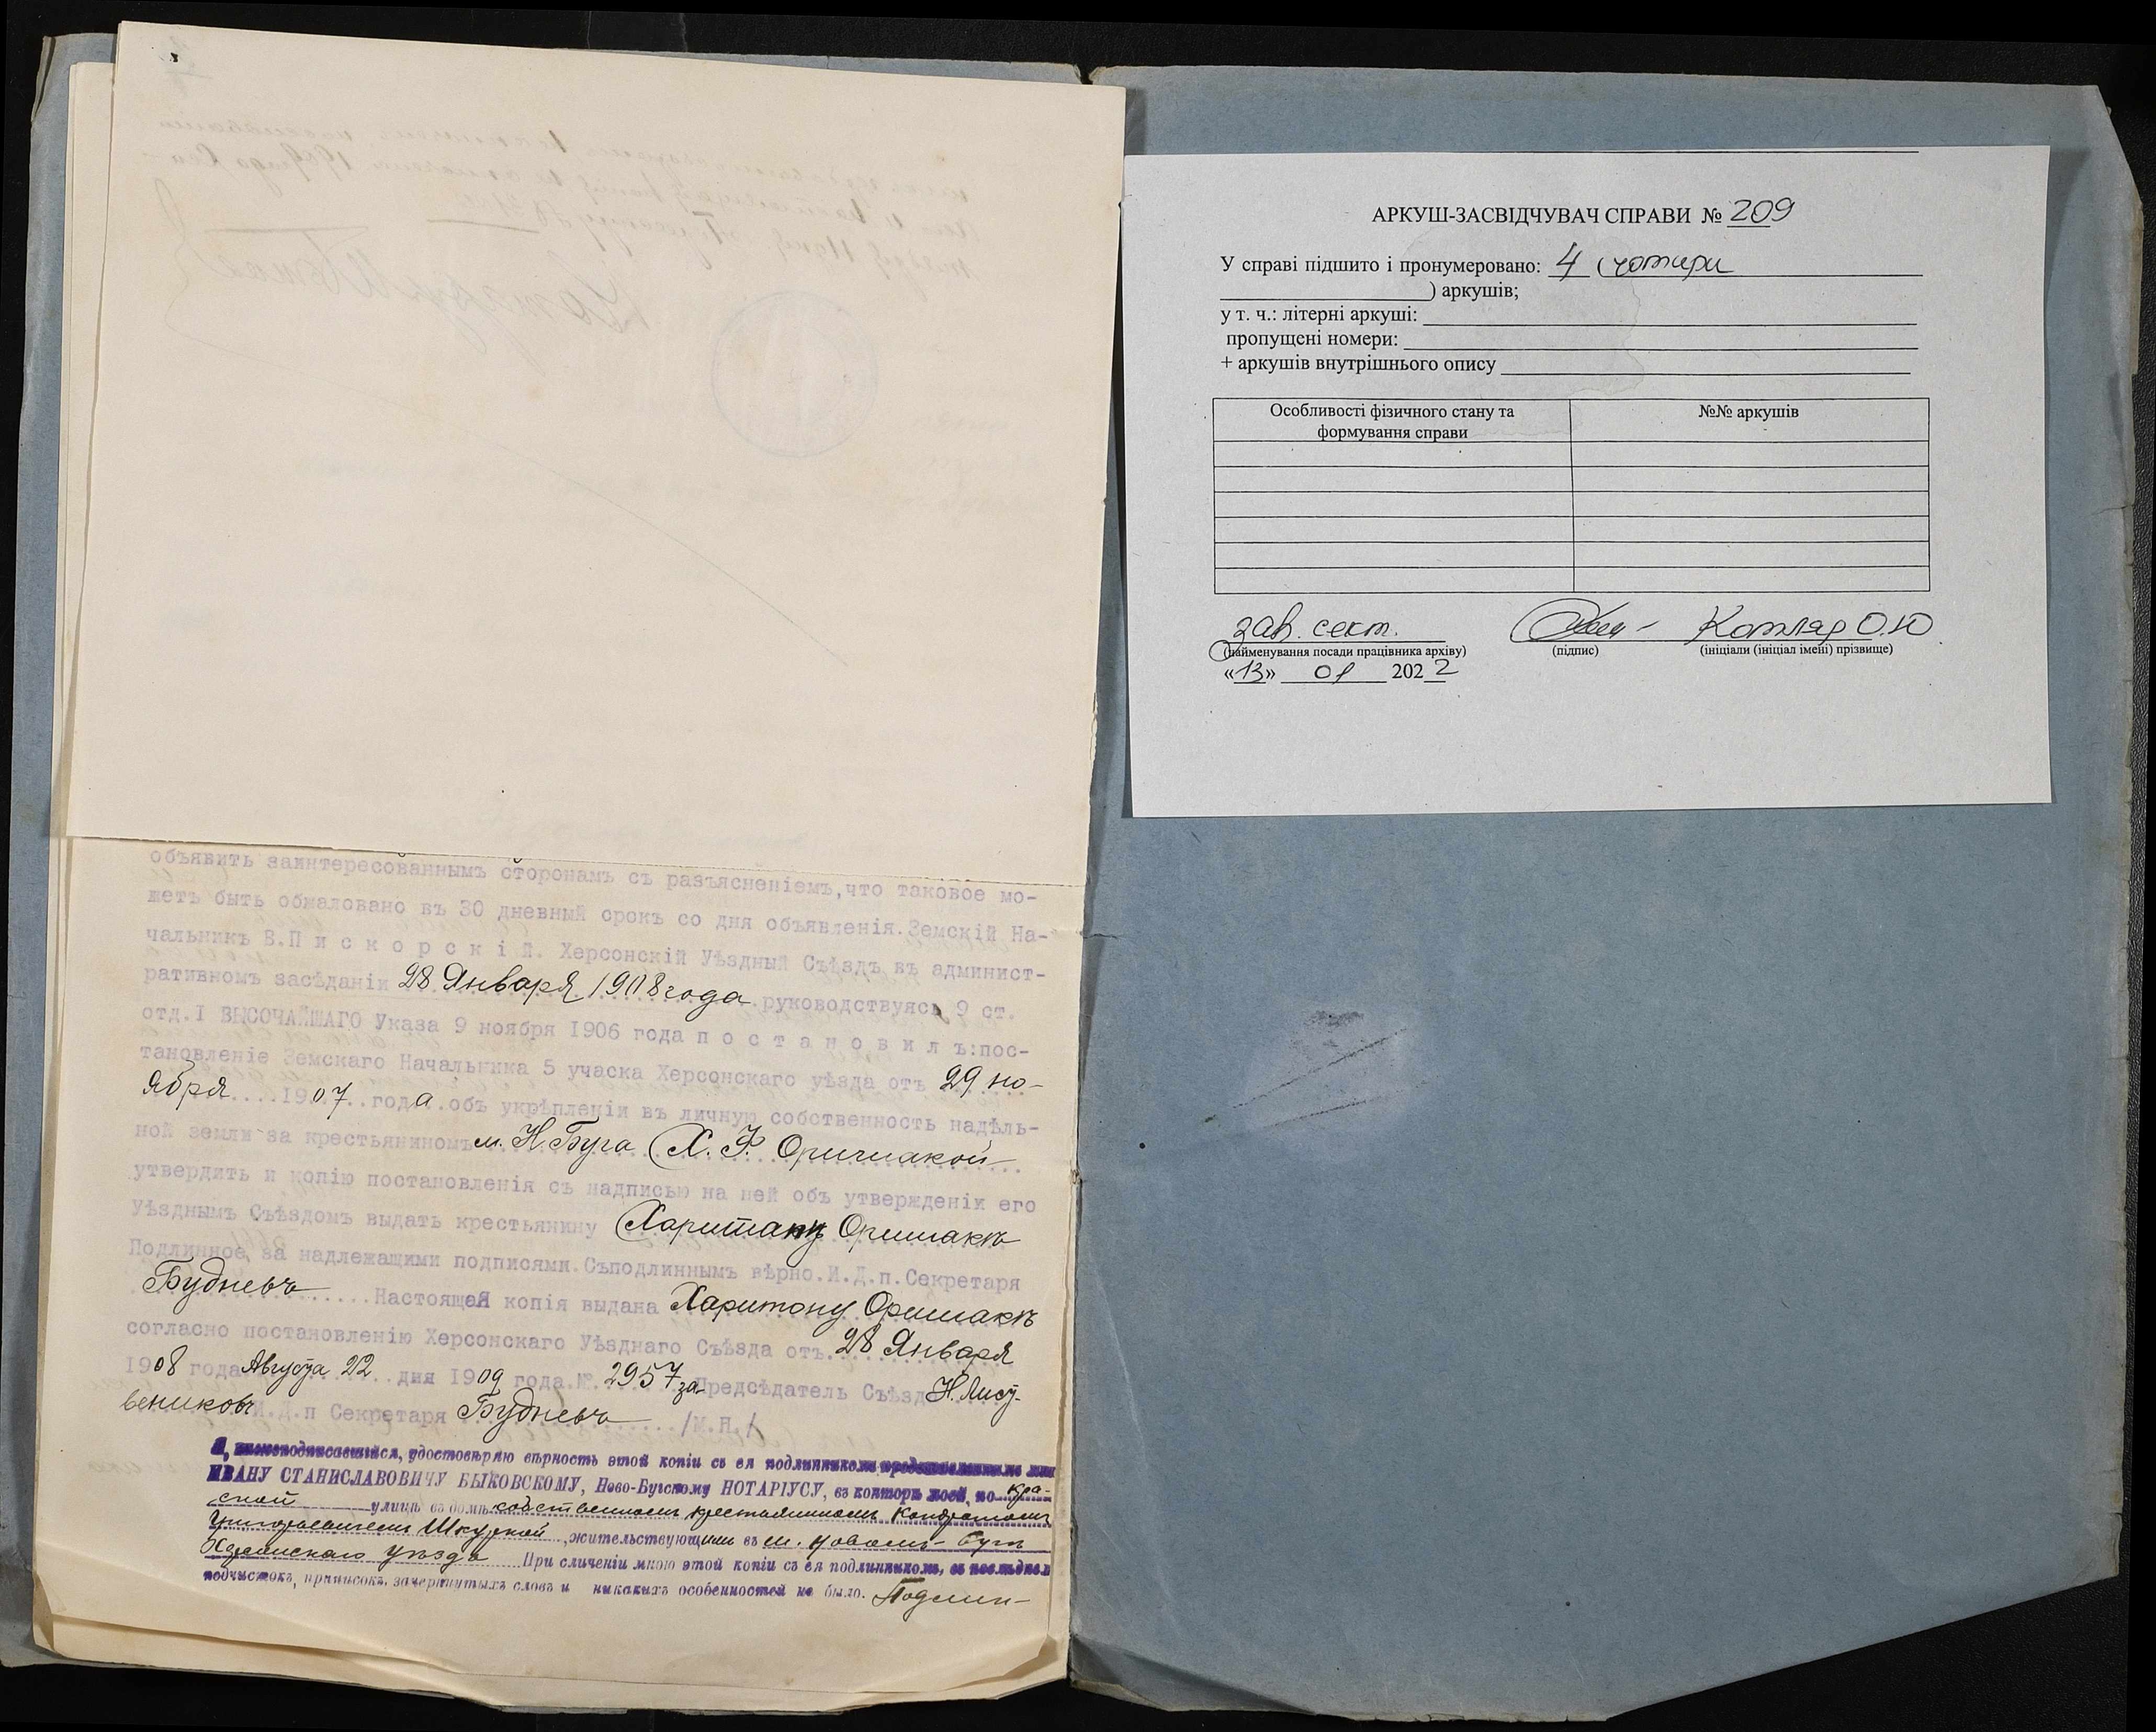 объявить заинтересованнымъ сторонамъ съ разъясненіемъ,что таковое мо-
жетъ быть обжаловано въ 30 дневный срокъ со дня объявленія.Земскій На-
чальникъ В.П и с к о р с к і й. Херсонскій Уѣздный Съѣздъ въ админист-
ративномъ засѣданіи 28 Января 1908 года руководствуясь 9 ст.
отд.I ВЫСОЧАЙШАГО Указа 9 ноября 1906 года п о с т а н о в и л ъ:пос-
тановленіе Земскаго Начальника 5 учаска Херсонскаго уѣзда отъ 29 но-
ября....1907..года.объ укрѣпленіи въ личную собственность надѣль-
ной земли за крестьяниномъ м. Н. Буга Х. Ф. Оришакой
утвердить и копію постановленія съ надписью на ней объ утвержденіи его
Уѣзднымъ Съѣздомъ выдать крестьянину Харитану Оришакѣ
Подлинное за надлежащими подписями.Съподлиннымъ вѣрно.И.Д.п.Секретаря
Будневъ Настоящая копія выдана Харитону Оришакѣ
согласно постановленію Херсонскаго Уѣзднаго Съѣзда отъ 28 Января
1908 года Августа 22 дня 1909 года.№ 2957 за Предсѣдатель Съѣзд Н. Лису-
вениковъ И.Д.п Секретаря Будневъ /М.П./
Я, нижеподписавшійся, удостовѣряю вѣрность этой копіи съ ея подлинникомъ представленнымъ мнѣ
ИВАНУ СТАНИСЛАВОВИЧУ БЫКОВСКОМУ, Ново-Бугскому НОТАРІУСУ, въ конторѣ моей, по Кра-
сной улицѣ въ домѣ собственномъ крестьяниномъ Кондратомъ
Григорьевичемъ Шкуркой ,жительствующимъ въ м. Новомъ-Бугѣ
Херсонскаго уѣзда При сличеніи мною этой копіи съ ея подлинникомъ, въ послѣднем
подчистокъ, приписокъ, зачеркнутыхъ словъ и никакихъ особенностей не было. Подлин-
АРКУШ-ЗАСВІДЧУВАЧ СПРАВИ № 209
У справі підшито і пронумеровано: 4 (чотири
) аркушів;
у т. ч.: літерні аркуші:
пропущені номери:
+ аркушів внутрішнього опису
Особливості фізичного стану та
формування справи
№№ аркушів
зав. сект. Котляр О.Ю
(найменування посади працівника архіву) (підпис) (ініціали (ініціал імені) прізвище)
«13» 01 2022